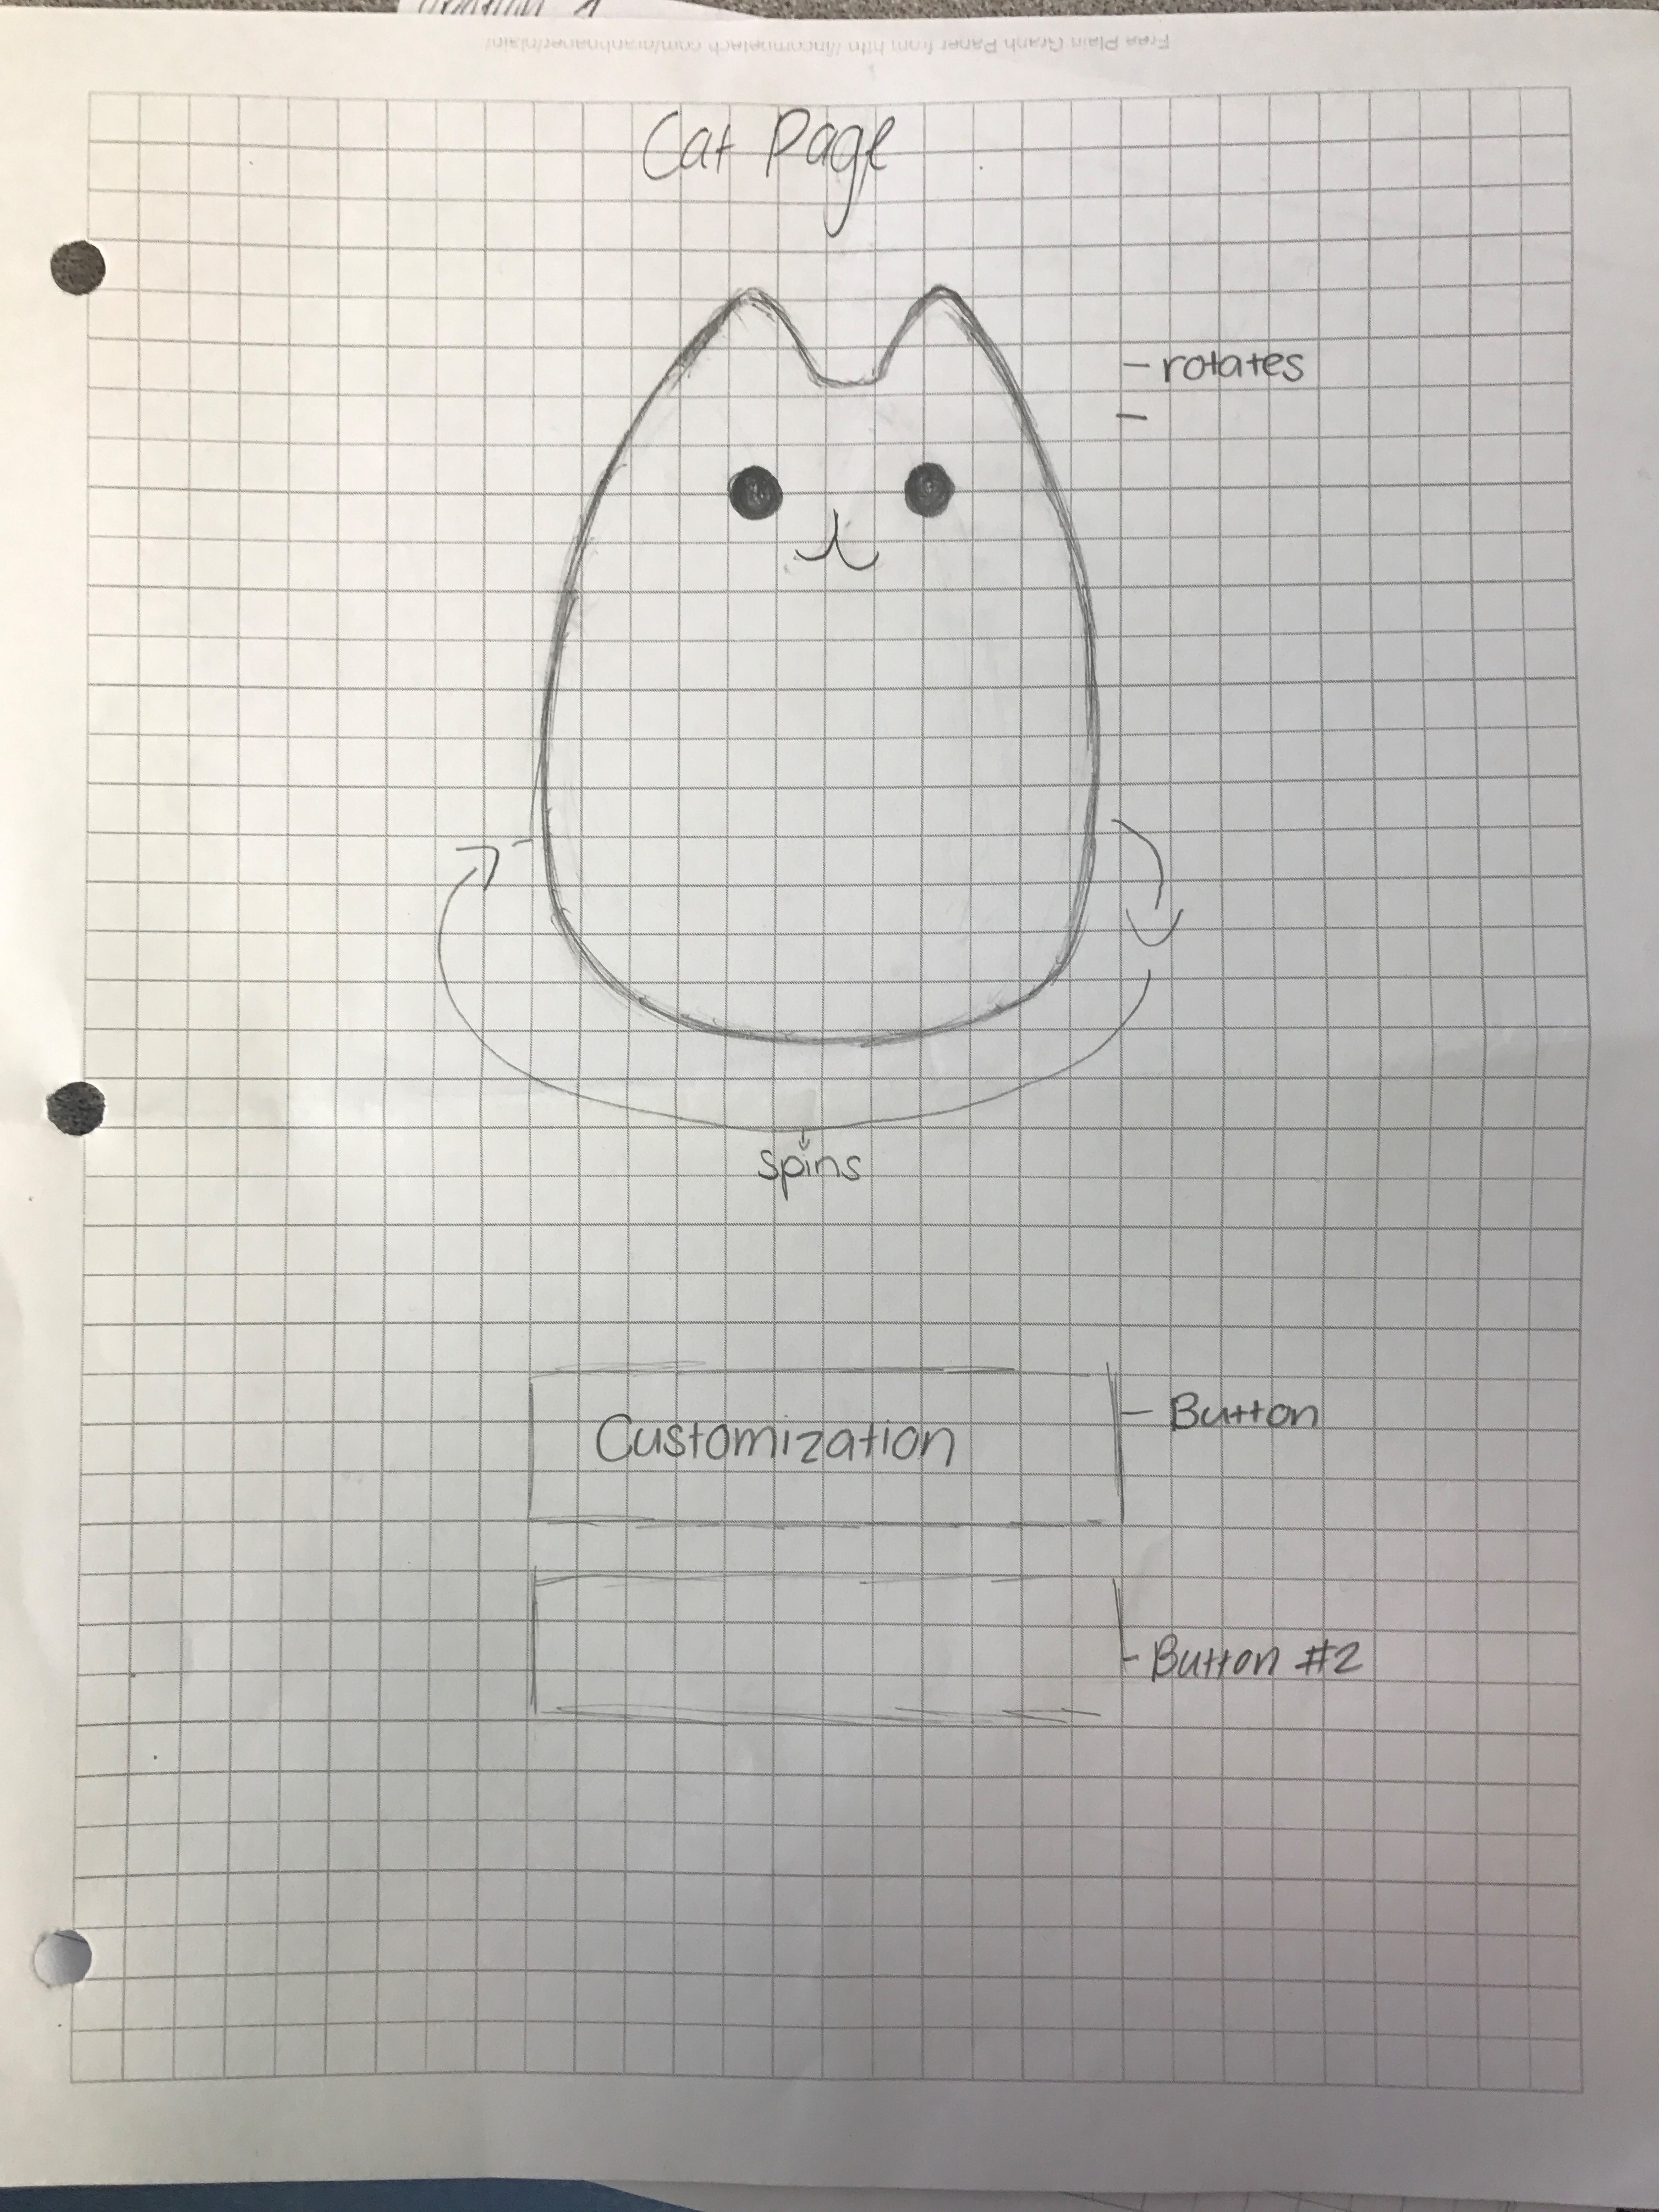 Free Plain Graph Paper from http://incompetech.com/graphpaper/plain/
Cat Page
- rotates
-
spins
Customization
- Button
- Button #2